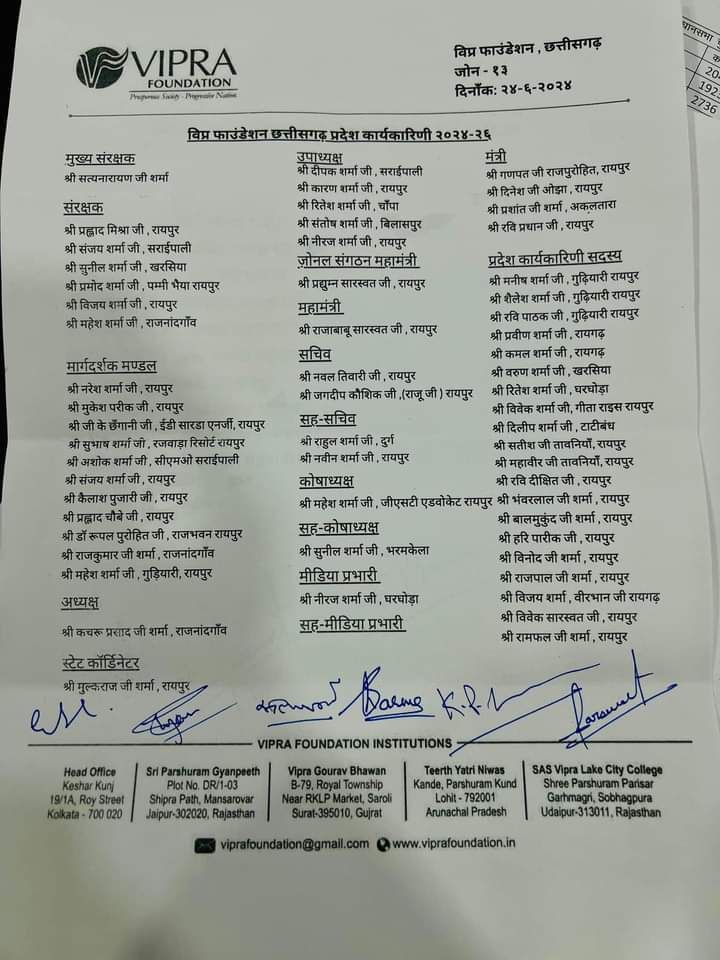 VIPRA
FOUNDATION
Prosperous Society - Progressive Nation
विप्र फाउंडेशन , छत्तीसगढ़
जोन - १३
दिनाँक: २४-६-२०२४
विप्र फाउंडेशन छत्तीसगढ़ प्रदेश कार्यकारिणी २०२४-२६
मुख्य संरक्षक
श्री सत्यनारायण जी शर्मा
संरक्षक
श्री प्रह्लाद मिश्रा जी , रायपुर
श्री संजय शर्मा जी , सराईपाली
श्री सुनील शर्मा जी , खरसिया
श्री प्रमोद शर्मा जी , पम्मी भैया रायपुर
श्री विजय शर्मा जी , रायपुर
श्री महेश शर्मा जी , राजनांदगाँव
मार्गदर्शक मण्डल
श्री नरेश शर्मा जी , रायपुर
श्री मुकेश परीक जी , रायपुर
श्री जी के छँगानी जी , ईडी सारडा एनर्जी, रायपुर
श्री सुभाष शर्मा जी , रजवाड़ा रिसोर्ट रायपुर
श्री अशोक शर्मा जी , सीएमओ सराईपाली
श्री संजय शर्मा जी , रायपुर
श्री कैलाश पुजारी जी , रायपुर
श्री प्रह्लाद चौबे जी , रायपुर
श्री डॉ रूपल पुरोहित जी , राजभवन रायपुर
श्री राजकुमार जी शर्मा , राजनांदगाँव
श्री महेश शर्मा जी , गुड़ियारी, रायपुर
अध्यक्ष
श्री कचरू प्रसाद जी शर्मा , राजनांदगाँव
स्टेट कॉर्डिनेटर
श्री मुल्कराज जी शर्मा , रायपुर
उपाध्यक्ष
श्री दीपक शर्मा जी , सराईपाली
श्री कारण शर्मा जी , रायपुर
श्री रितेश शर्मा जी , चाँपा
श्री संतोष शर्मा जी , बिलासपुर
श्री नीरज शर्मा जी , रायपुर
ज़ोनल संगठन महामंत्री
श्री प्रद्युम्न सारस्वत जी , रायपुर
महामंत्री
श्री राजाबाबू सारस्वत जी , रायपुर
सचिव
श्री नवल तिवारी जी , रायपुर
श्री जगदीप कौशिक जी ,(राजू जी ) रायपुर
सह-सचिव
श्री राहुल शर्मा जी , दुर्ग
श्री नवीन शर्मा जी , रायपुर
कोषाध्यक्ष
श्री महेश शर्मा जी , जीएसटी एडवोकेट रायपुर
सह-कोषाध्यक्ष
श्री सुनील शर्मा जी , भरमकेला
मीडिया प्रभारी
श्री नीरज शर्मा जी , घरघोड़ा
सह-मीडिया प्रभारी
मंत्री
श्री गणपत जी राजपुरोहित, रायपुर
श्री दिनेश जी ओझा , रायपुर
श्री प्रशांत जी शर्मा , अकलतारा
श्री रवि प्रधान जी , रायपुर
प्रदेश कार्यकारिणी सदस्य
श्री मनीष शर्मा जी , गुढ़ियारी रायपुर
श्री शैलेश शर्मा जी , गुढ़ियारी रायपुर
श्री रवि पाठक जी , गुढ़ियारी रायपुर
श्री प्रवीण शर्मा जी , रायगढ़
श्री कमल शर्मा जी , रायगढ़
श्री वरुण शर्मा जी , खरसिया
श्री रितेश शर्मा जी , घरघोड़ा
श्री विवेक शर्मा जी, गीता राइस रायपुर
श्री दिलीप शर्मा जी , टाटीबंध
श्री सतीश जी तावनियाँ, रायपुर
श्री महावीर जी तावनियाँ, रायपुर
श्री रवि दीक्षित जी , रायपुर
श्री भंवरलाल जी शर्मा , रायपुर
श्री बालमुकुंद जी शर्मा , रायपुर
श्री हरि पारीक जी , रायपुर
श्री विनोद जी शर्मा , रायपुर
श्री राजपाल जी शर्मा , रायपुर
श्री विजय शर्मा , वीरभान जी रायगढ़
श्री विवेक सारस्वत जी , रायपुर
श्री रामफल जी शर्मा , रायपुर
VIPRA FOUNDATION INSTITUTIONS
Head Office
Keshar Kunj
19/1A, Roy Street
Kolkata - 700 020
Sri Parshuram Gyanpeeth
Plot No. DR/1-03
Shipra Path, Mansarovar
Jaipur-302020, Rajasthan
Vipra Gourav Bhawan
B-79, Royal Township
Near RKLP Market, Saroli
Surat-395010, Gujrat
Teerth Yatri Niwas
Kande, Parshuram Kund
Lohit - 792001
Arunachal Pradesh
SAS Vipra Lake City College
Shree Parshuram Parisar
Garhmagri, Sobhagpura
Udaipur-313011, Rajasthan
viprafoundation@gmail.com www.viprafoundation.in
1925
2736